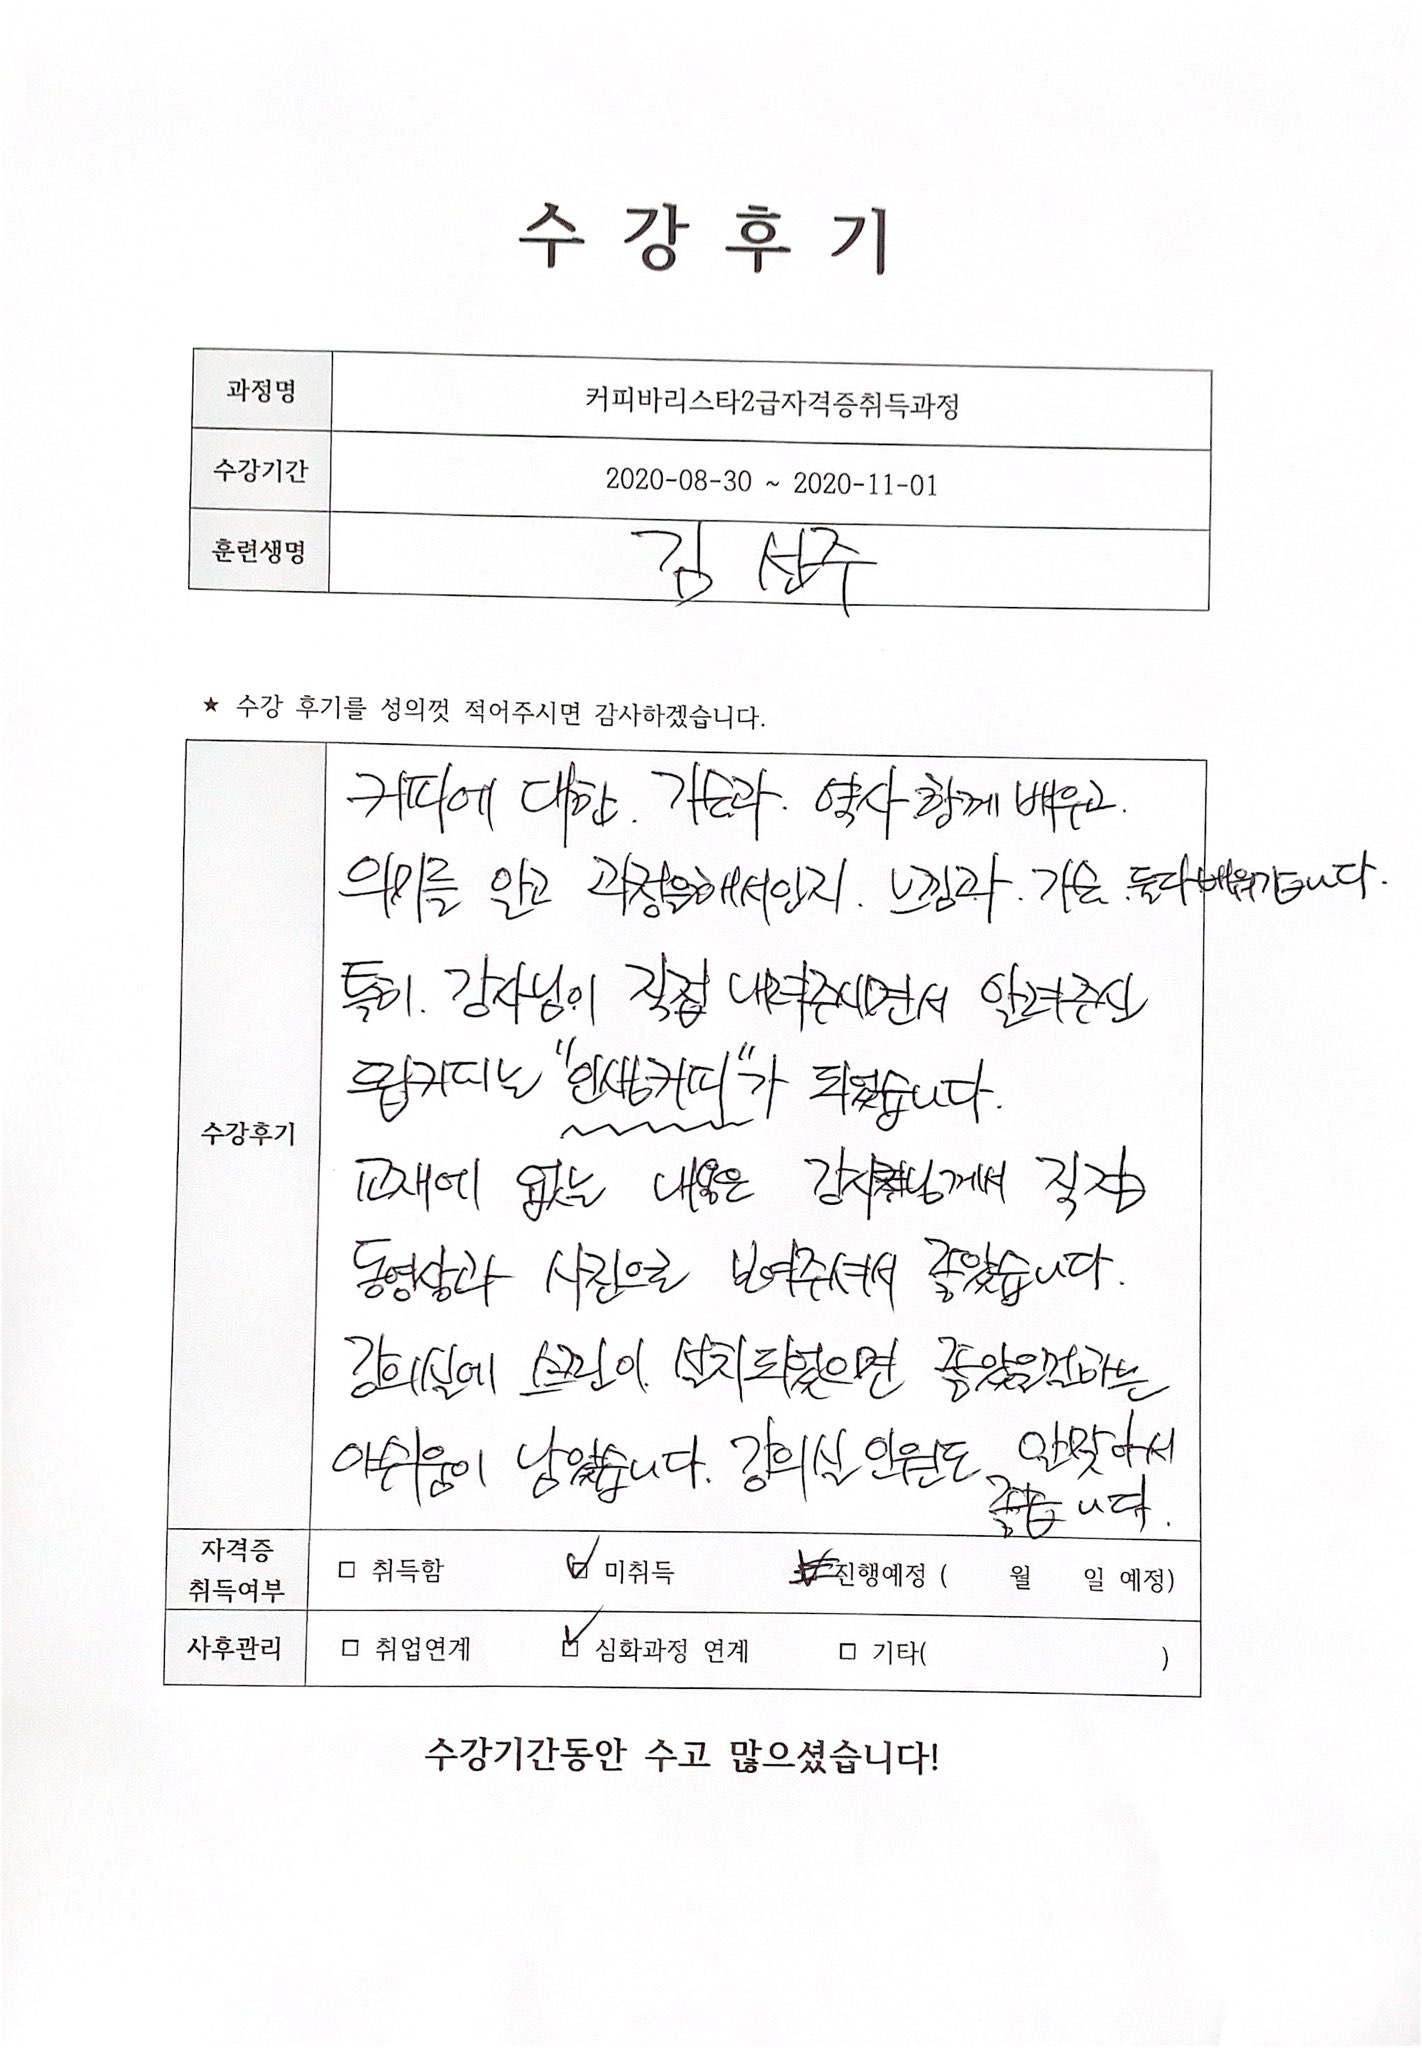 수 강 후 기
과정명 커피바리스타2급자격증취득과정
수강기간 2020-08-30 ~ 2020-11-01
훈련생명 김 선주
★ 수강 후기를 성의껏 적어주시면 감사하겠습니다.
수강후기
커피에 대한. 기술과. 역사 함께 배우고.
의미를 알고 과정을해서인지. 느낌과. 기술. 둘다배워갑니다.
특히. 강사님이 직접 내려주시면서 알려주신
드립커피는 "인생커피"가 되었습니다.
교재에 없는 내용은 강사님께서 직접
동영상과 사진으로 보여주셔서 좋았습니다.
강의실에 스크린이. 설치되었으면 좋았을걸하는
아쉬움이 남았습니다. 강의실 인원도 알맞아서
좋습니다.
자격증 취득여부 □ 취득함 ☑ 미취득 진행예정 ( 월 일 예정)
사후관리 □ 취업연계 ☑ 심화과정 연계 □ 기타( )
수강기간동안 수고 많으셨습니다!